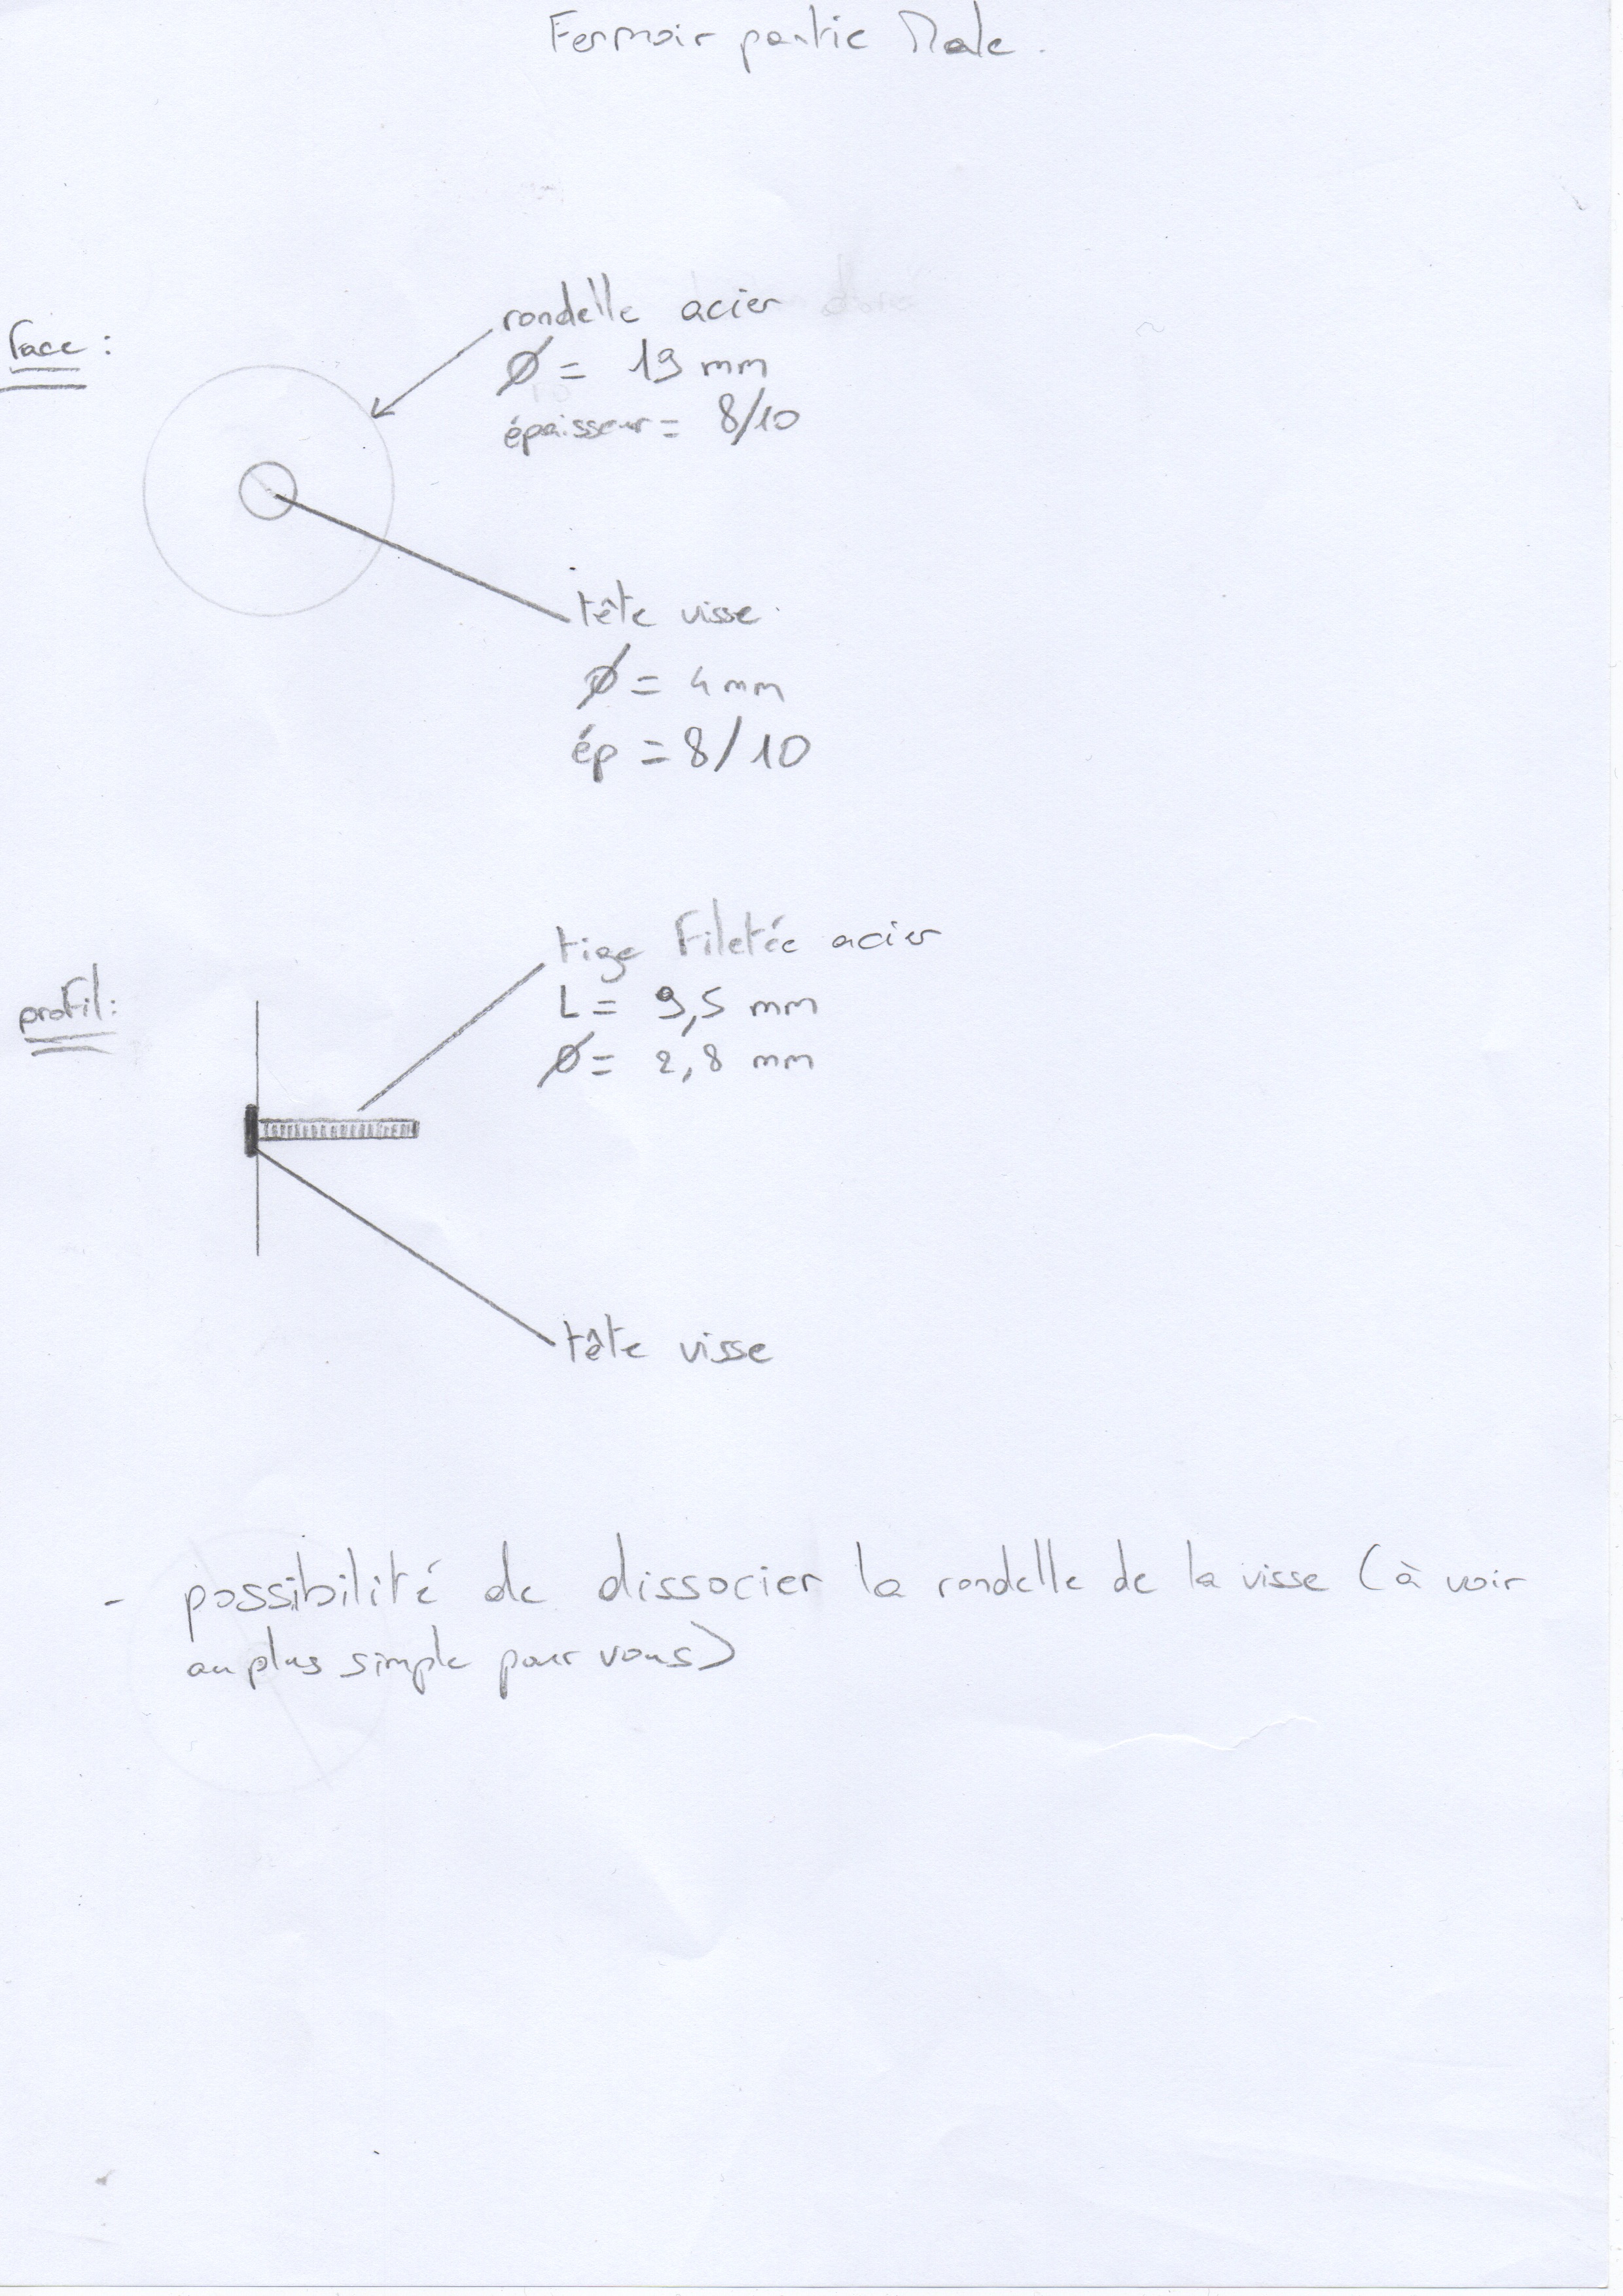 Fermoir partie Male.
Face :
rondelle acier
Ø = 19 mm
épaisseur = 8/10
tête visse
Ø = 4 mm
ép = 8/10
profil :
tige Filetée acier
L = 9,5 mm
Ø = 2,8 mm
tête visse
- possibilité de dissocier la rondelle de la visse (à voir
au plus simple pour vous)